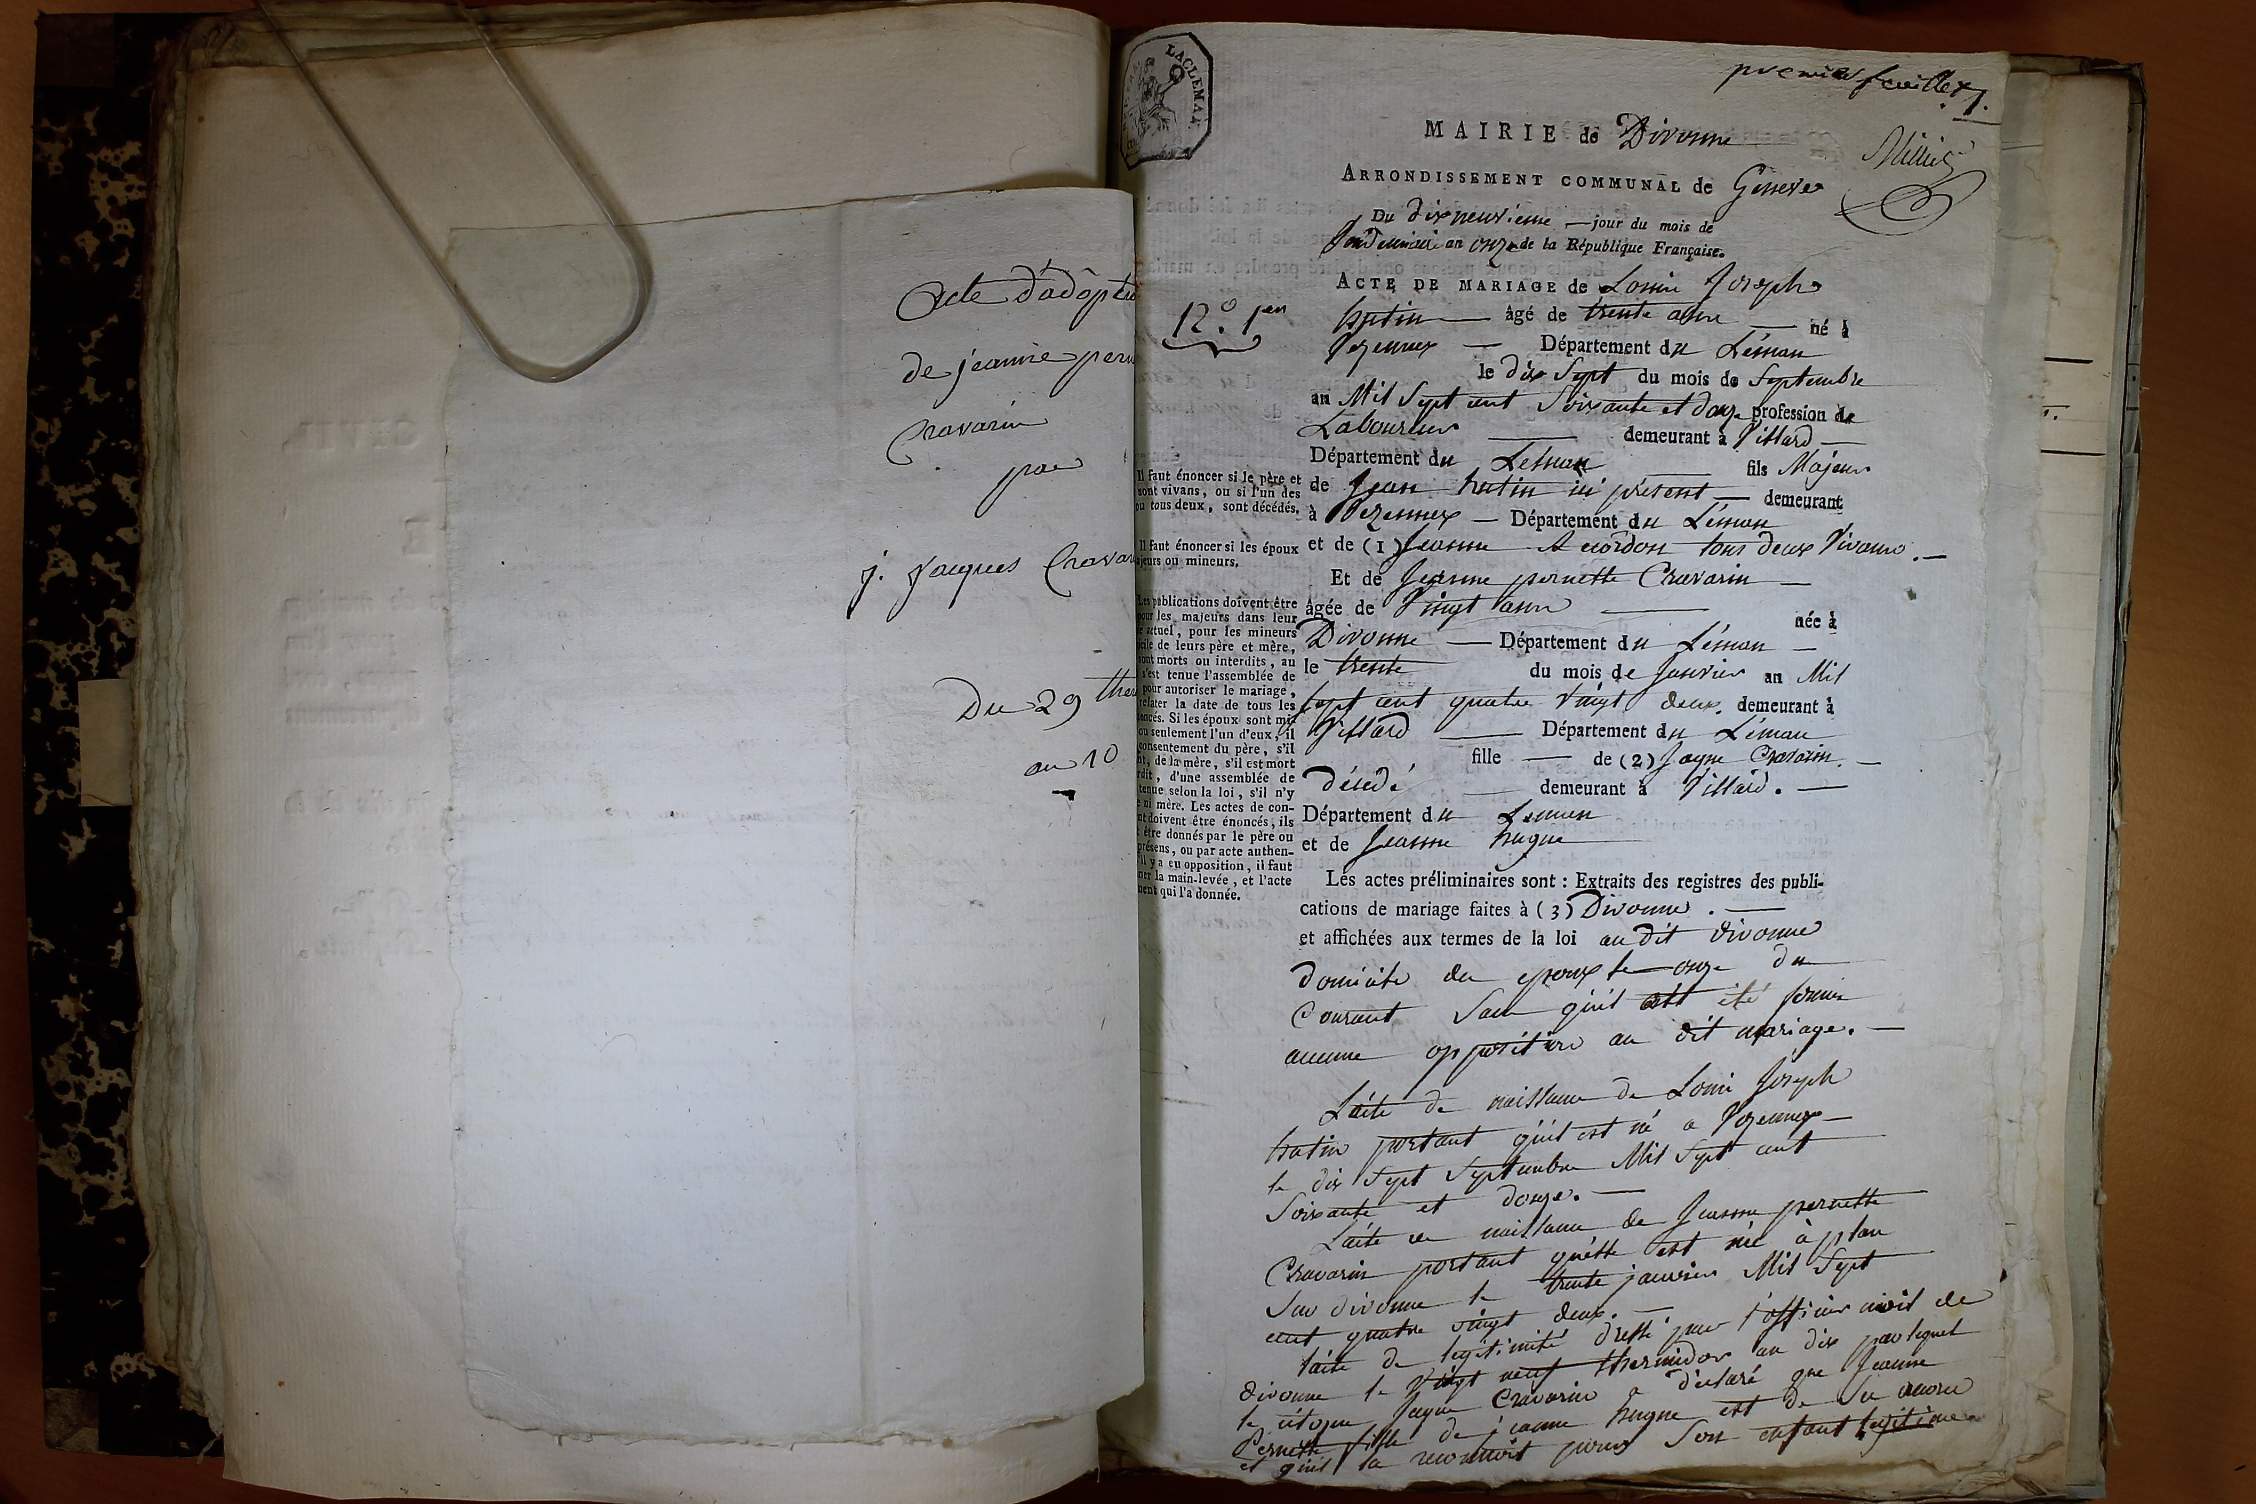 Acte d'adôptio
de jeanne pern
Cravarin
par
j. Jacques Cravar
Du 29 ther
an 10
LACLEMAN
premier feuillet
MAIRIE de Divonne
ARRONDISSEMENT COMMUNAL de Geneve
Du dix neuvieme — jour du mois de
Vendemiaire an onze de la République Française.
12.º 1.er
ACTE DE MARIAGE de Louis Joseph
hutin — âgé de trente ans — né à
Vezennex — Département du Léman
le dix Sept du mois de Septembre
an Mil Sept cent Soixante et douze profession de
Laboureur — demeurant à Villard —
Département du Leman — fils Majeur
de Jean hutin ici présent — demeurant
à Vezennex — Département du Léman
et de (1) Jeanne tous deux Vivans. —
Et de Jeanne pernette Cravarin —
âgée de Vingt ans — née à
Divonne — Département du Léman —
le trente du mois de Janvier an Mil
Sept cent quatre Vingt deux. demeurant à
Villard — Département du Léman
fille — de (2) Jaque Cravarin. —
décédé — demeurant à Villard. —
Département du Leman
et de Jeanne hugue
Les actes préliminaires sont : Extraits des registres des publi-
cations de mariage faites à (3) Divonne. —
et affichées aux termes de la loi au dit divonne
domicile des epoux le onze du
Courant Sans qu'il ait été formé
aucune opposition au dit mariage. —
L'acte de naissance de Louis Joseph
hutin portant qu'il est né a Vezennex —
le dix Sept Septembre Mil Sept cent
Soixante et douze. —
L'acte de naissance de Jeanne pernette
Cravarin portant qu'elle est née à plan
Sur divonne le trente janvier Mil Sept
cent quatre vingt deux. —
l'acte de legitimité dressé par l'officier civil de
divonne le Vingt neuf thermidor an dix par lequel
le citoyen Jaque Cravarin a déclaré que Jeanne
Pernette fille de jeanne hugue est de Ses œuvres
et qu'il la reconnoit pour Son enfant legitime
Il faut énoncer si le père et
sont vivans, ou si l'un des
ou tous deux, sont décédés.
Il faut énoncer si les époux
ajeurs ou mineurs.
Les publications doivent être
pour les majeurs dans leur
e actuel, pour les mineurs
icile de leurs père et mère,
sont morts ou interdits, au
s'est tenue l'assemblée de
pour autoriser le mariage,
relater la date de tous les
oncés. Si les époux sont mi
ou seulement l'un d'eux, il
consentement du père, s'il
nt, de la mère, s'il est mort
rdit, d'une assemblée de
tenue selon la loi, s'il n'y
e ni mère. Les actes de con-
nt doivent être énoncés, ils
t être donnés par le père ou
présens, ou par acte authen-
'il y a eu opposition, il faut
ner la main-levée, et l'acte
ment qui l'a donnée.